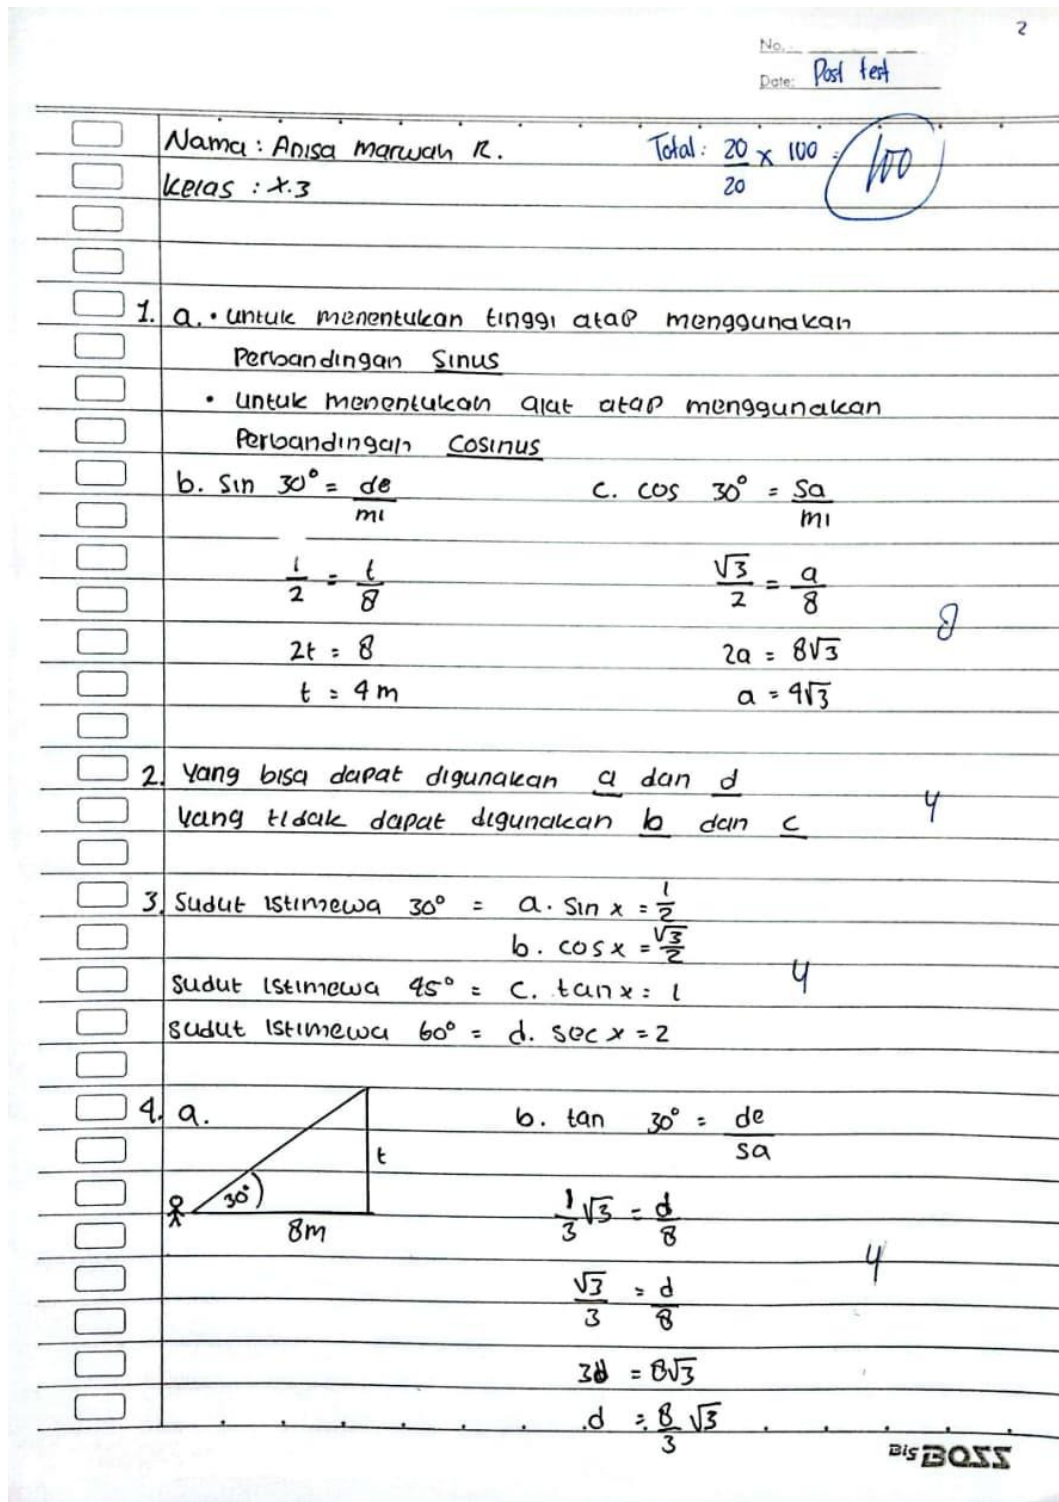 2
No.:
Date: Post test
Nama : Anisa marwah R.
Total : 20/20 x 100 = 100
Kelas : X.3
1. a. • untuk menentukan tinggi atap menggunakan
Perbandingan Sinus
• untuk menentukan alat atap menggunakan
Perbandingan Cosinus
b. Sin 30° = de/mi
c. cos 30° = sa/mi
1/2 = t/8
√3/2 = a/8
8
2t = 8
2a = 8√3
t = 4 m
a = 4√3
2. Yang bisa dapat digunakan a dan d
4
Yang tidak dapat digunakan b dan c
3. Sudut istimewa 30° = a. Sin x = 1/2
b. cos x = √3/2
4
Sudut istimewa 45° = c. tan x = 1
Sudut istimewa 60° = d. sec x = 2
4. a.
b. tan 30° = de/sa
t
30°
8m
1/3 √3 = d/8
4
√3/3 = d/8
3d = 8√3
d = 8/3 √3
Big BOSS